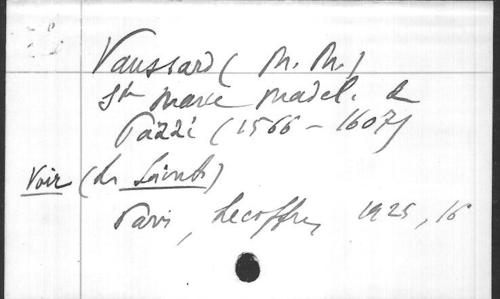 Vaussard (M. M.)
Ste Marie Madel. de
Pazzi (1566 - 1607)
Voir (Les Saints)
Paris, Lecoffre, 1925, 16